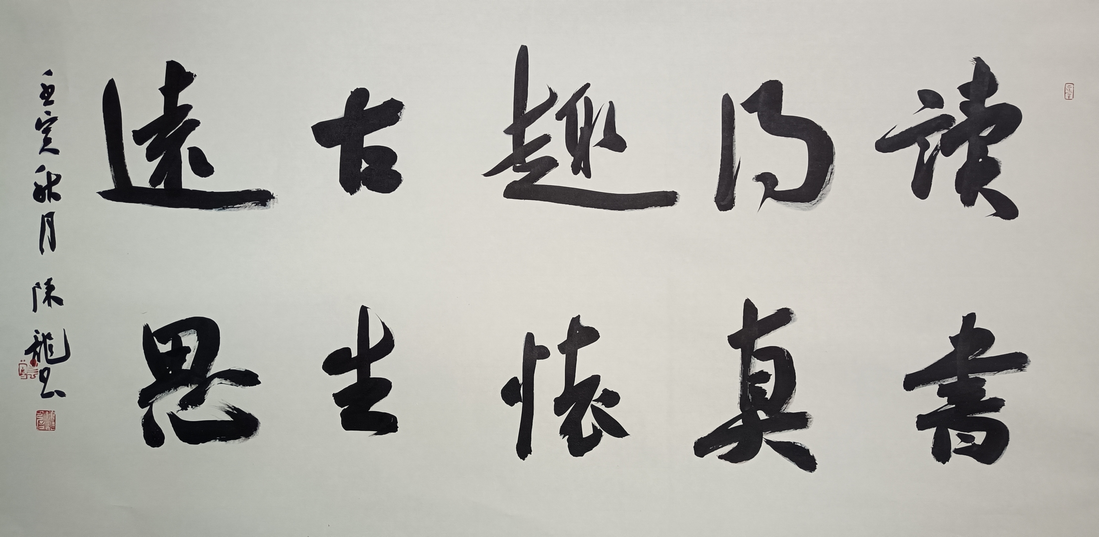 讀書
得真
趣懷
古生
遠思
壬寅秋月陳龍書